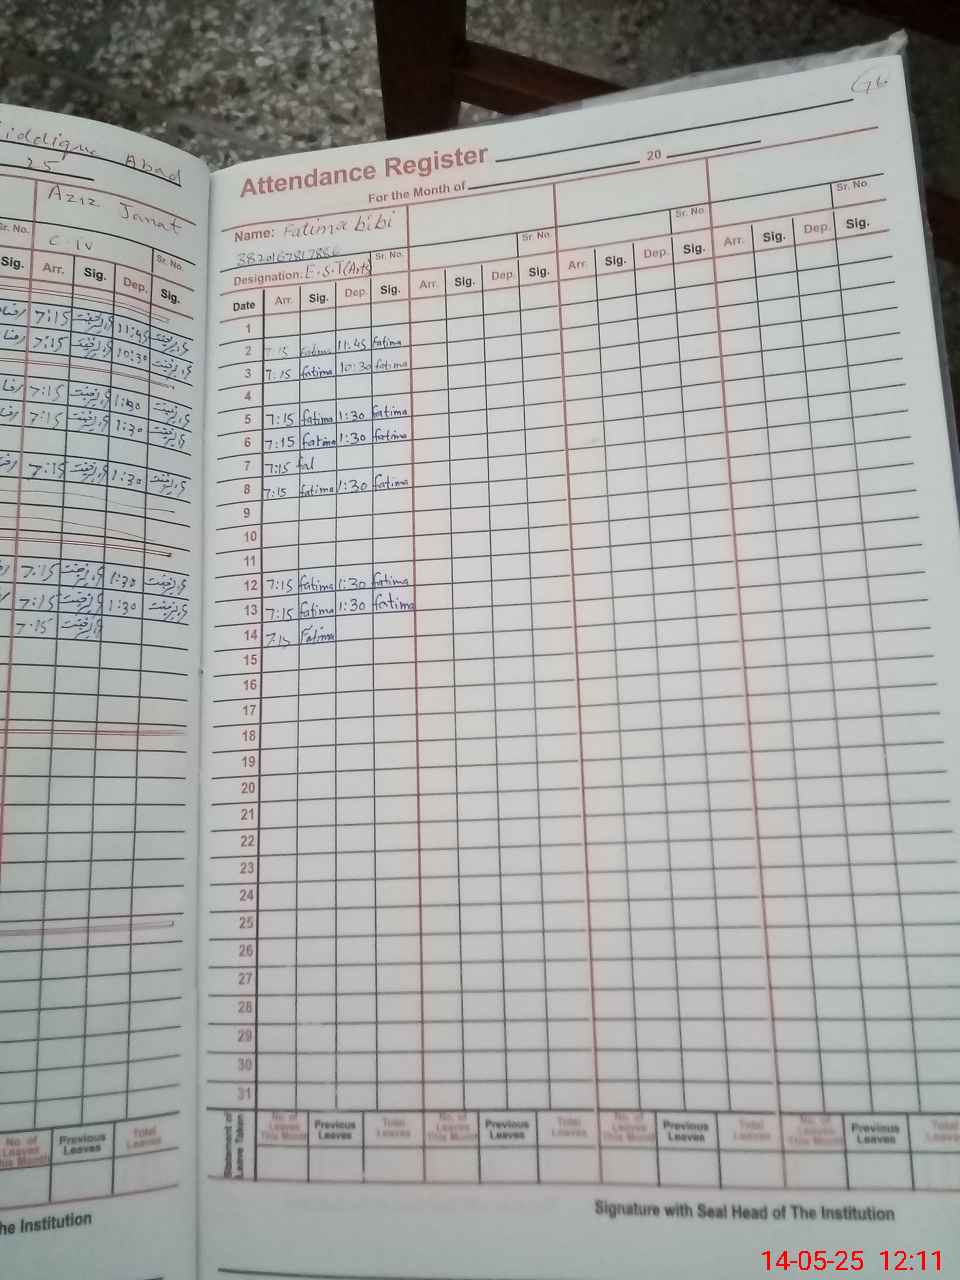 Abad
25
Aziz Janat
Sr. No.
C-IV
Sr. No.
Sig. Arr. Sig. Dep. Sig.
7:15 11:45
7:15 10:30
7:15 1:30
7:15 1:30
7:15 1:30
7:15 1:30
7:15 1:30
7:15
No. of Leaves This Month Previous Leaves Total Leaves
The Institution
Attendance Register
For the Month of 20
Name: Fatima bibi
Sr. No. Sr. No. Sr. No.
Designation: E.S.T (Arts Sr. No.
Date Arr. Sig. Dep. Sig. Arr. Sig. Dep. Sig. Arr. Sig. Dep. Sig. Arr. Sig. Dep. Sig.
1
2 7:15 Fatima 11:45 Fatima
3 7:15 fatima 10:30 fatima
4
5 7:15 fatima 1:30 fatima
6 7:15 fatima 1:30 fatima
7 7:15 fal
8 7:15 fatima 1:30 fatima
9
10
11
12 7:15 fatima 1:30 fatima
13 7:15 fatima 1:30 fatima
14 7:15 Fatima
15
16
17
18
19
20
21
22
23
24
25
26
27
28
29
30
31
Statement of Leave Taken No. of Leaves This Month Previous Leaves Total Leaves No. of Leaves This Month Previous Leaves Total Leaves No. of Leaves This Month Previous Leaves Total Leaves No. of Leaves This Month Previous Leaves Total
Signature with Seal Head of The Institution
14-05-25 12:11